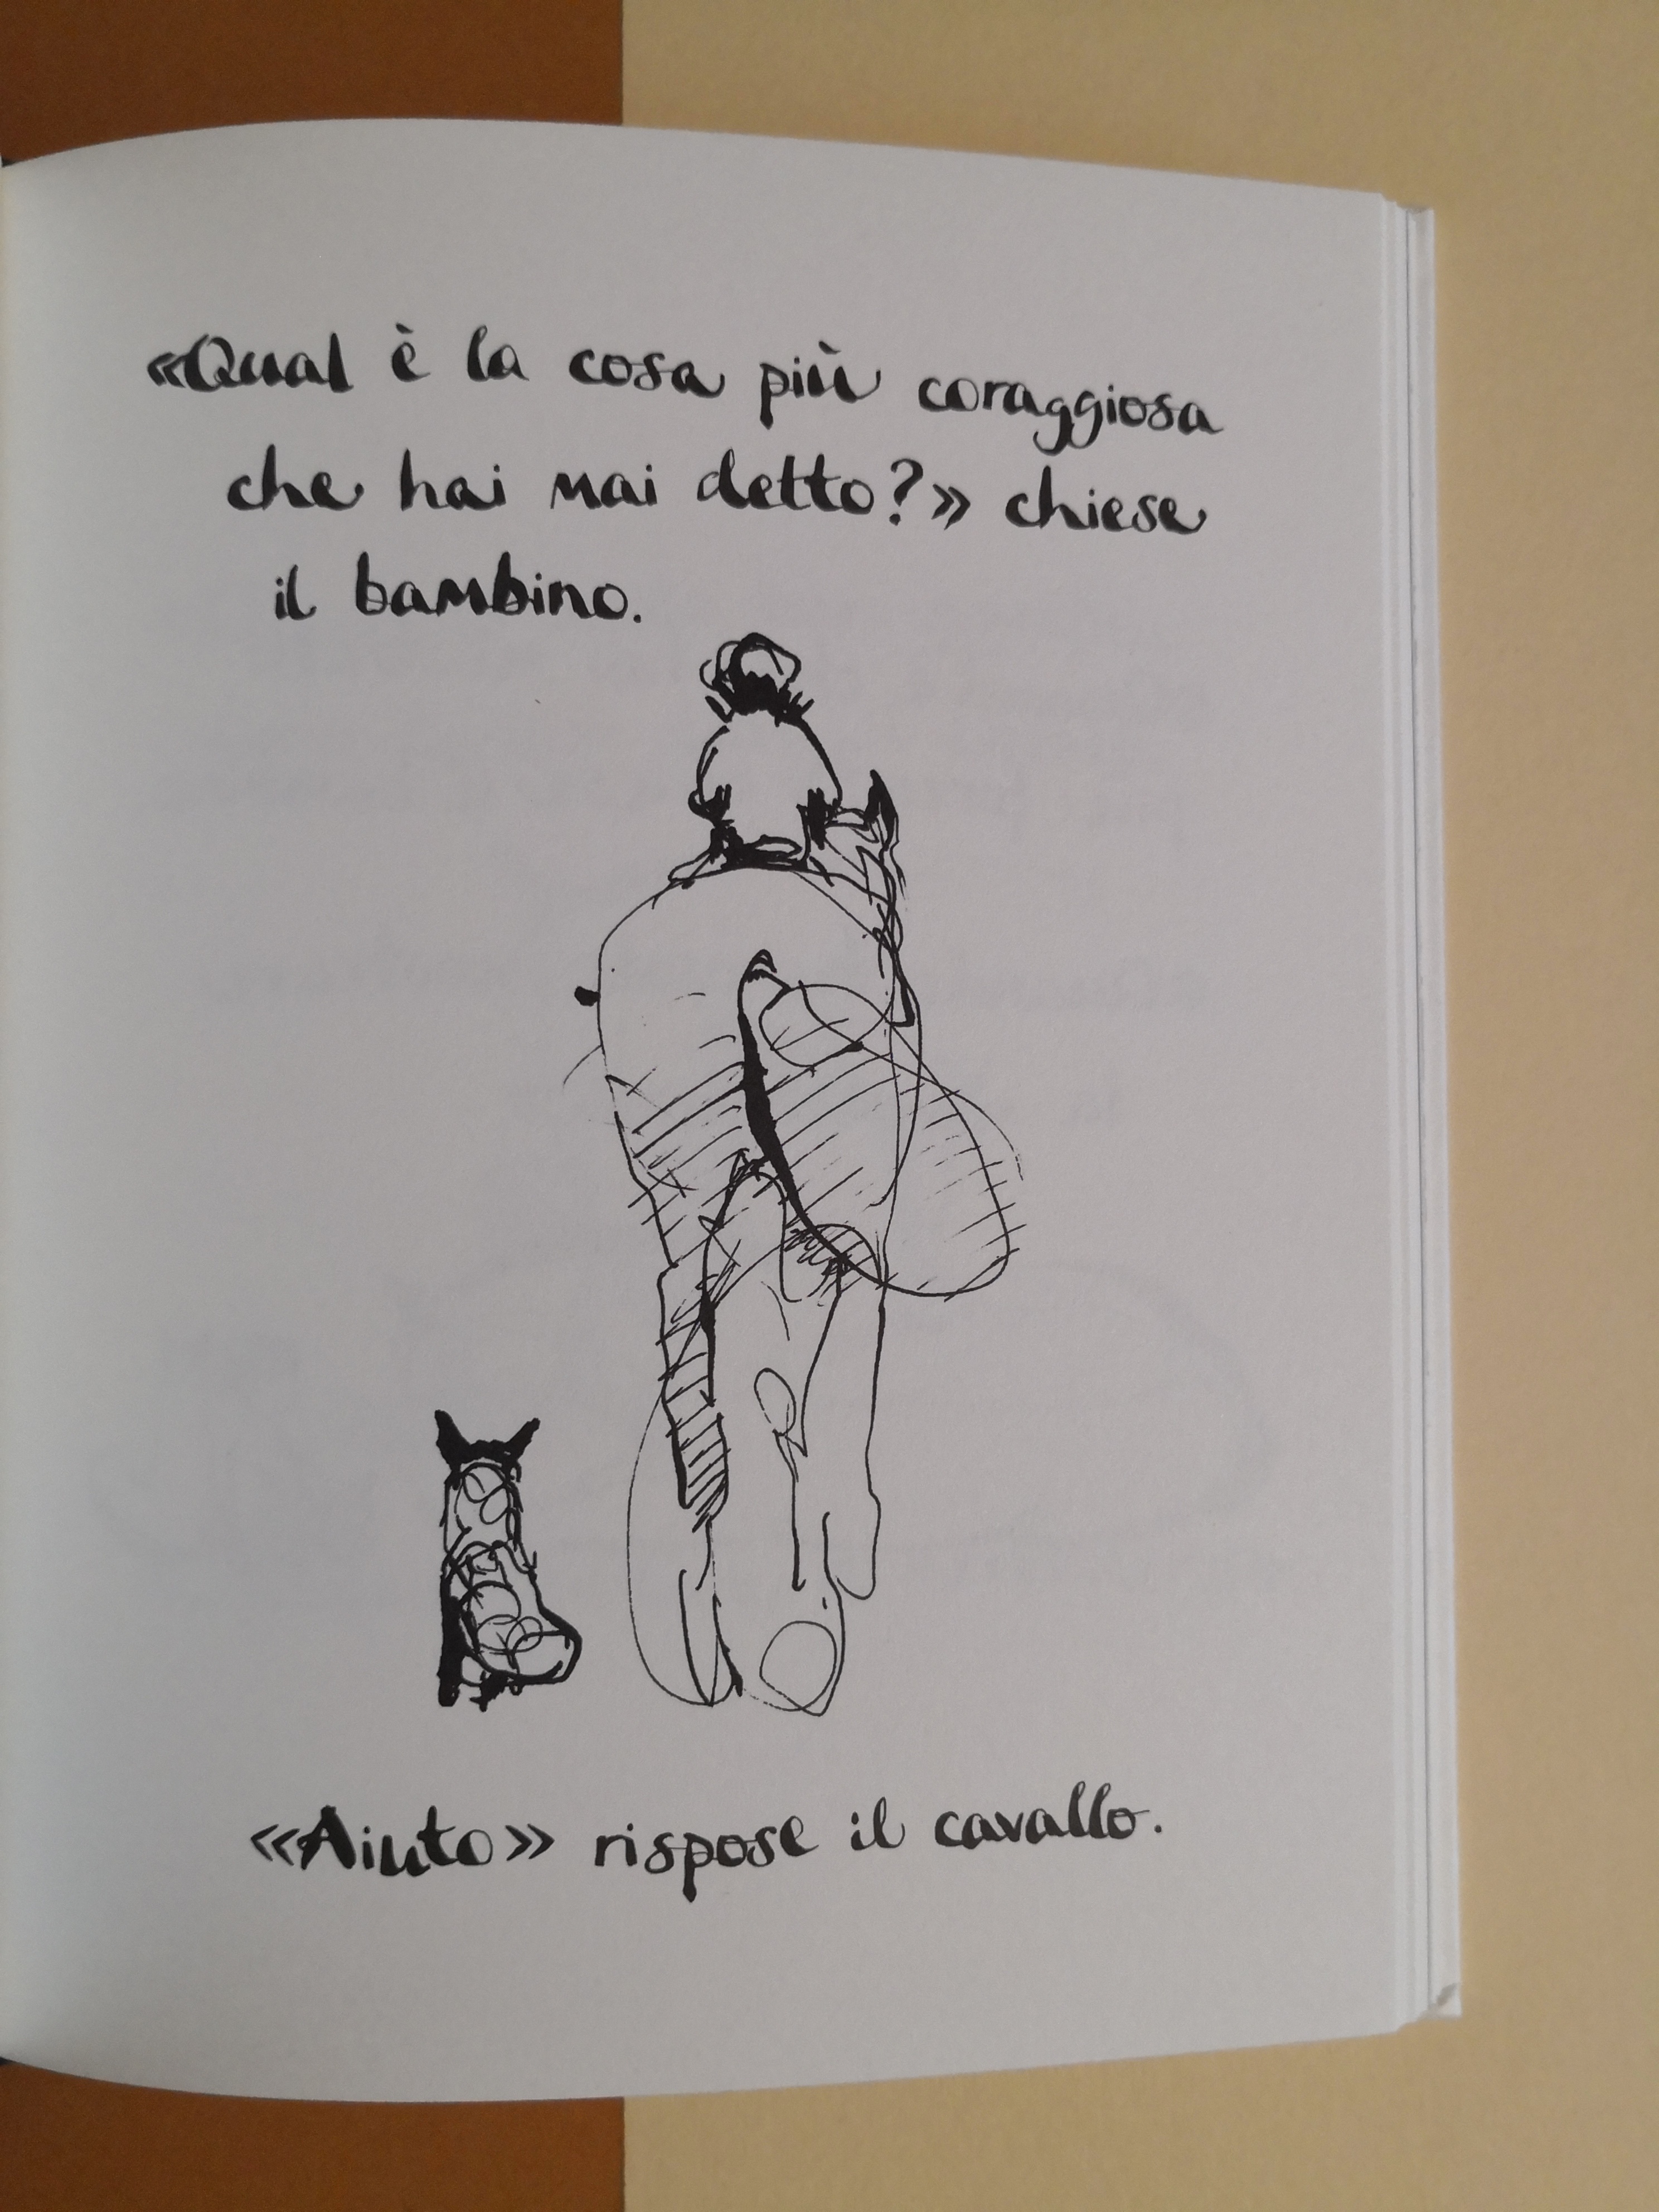 «Qual è la cosa più coraggiosa
che hai mai detto?» chiese
il bambino.
«Aiuto» rispose il cavallo.